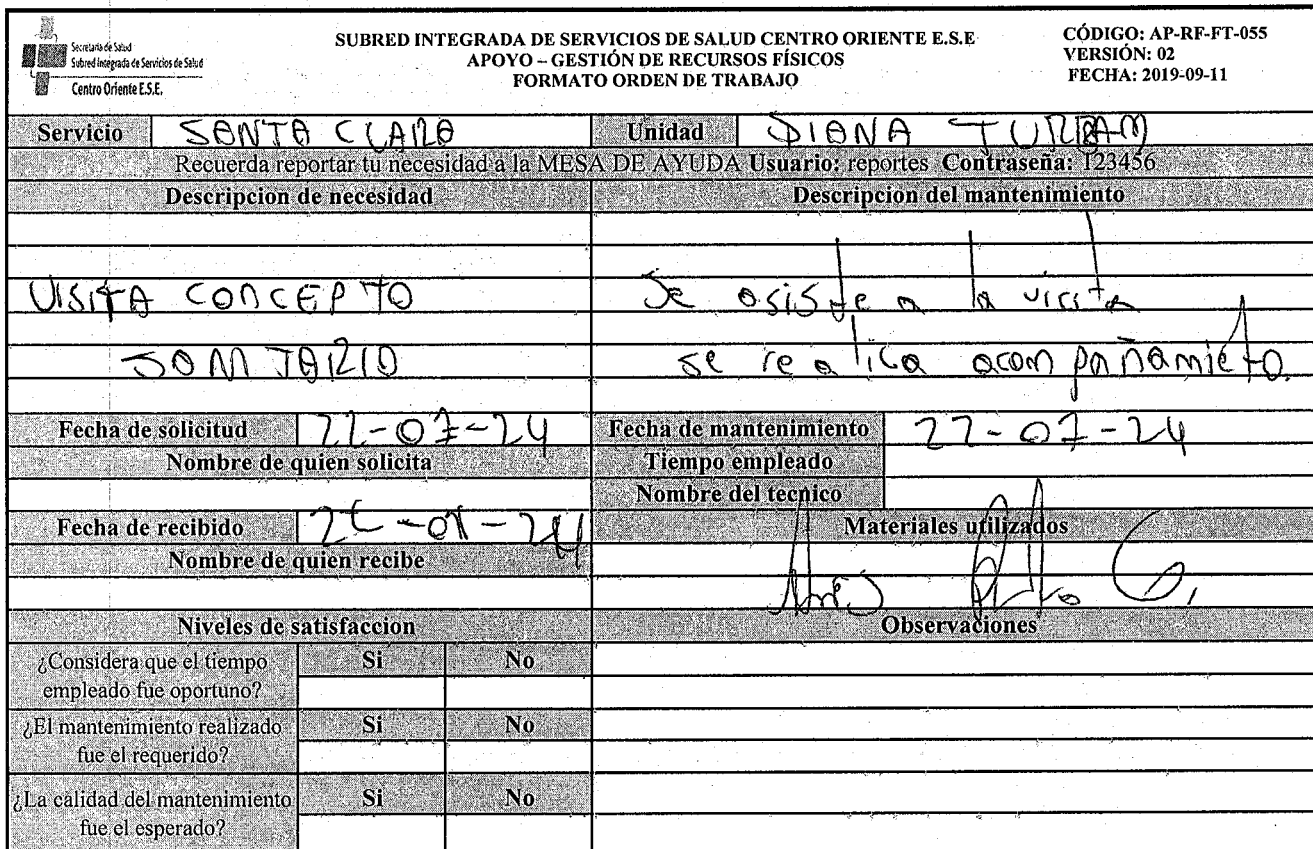 Secretaría de Salud
Subred Integrada de Servicios de Salud
Centro Oriente E.S.E.
SUBRED INTEGRADA DE SERVICIOS DE SALUD CENTRO ORIENTE E.S.E
APOYO – GESTIÓN DE RECURSOS FÍSICOS
FORMATO ORDEN DE TRABAJO
CÓDIGO: AP-RF-FT-055
VERSIÓN: 02
FECHA: 2019-09-11
Servicio SANTA CLARA Unidad DIANA TURBAY
Recuerda reportar tu necesidad a la MESA DE AYUDA Usuario: reportes Contraseña: 123456
Descripcion de necesidad Descripcion del mantenimiento
VISITA CONCEPTO Se asiste a la visita
SANITARIO se realiza acompañamieto.
Fecha de solicitud 22-07-24 Fecha de mantenimiento 22-07-24
Nombre de quien solicita Tiempo empleado
Nombre del tecnico
Fecha de recibido Materiales utilizados
Nombre de quien recibe
Niveles de satisfaccion Observaciones
¿Considera que el tiempo empleado fue oportuno? Si No
¿El mantenimiento realizado fue el requerido? Si No
¿La calidad del mantenimiento fue el esperado? Si No